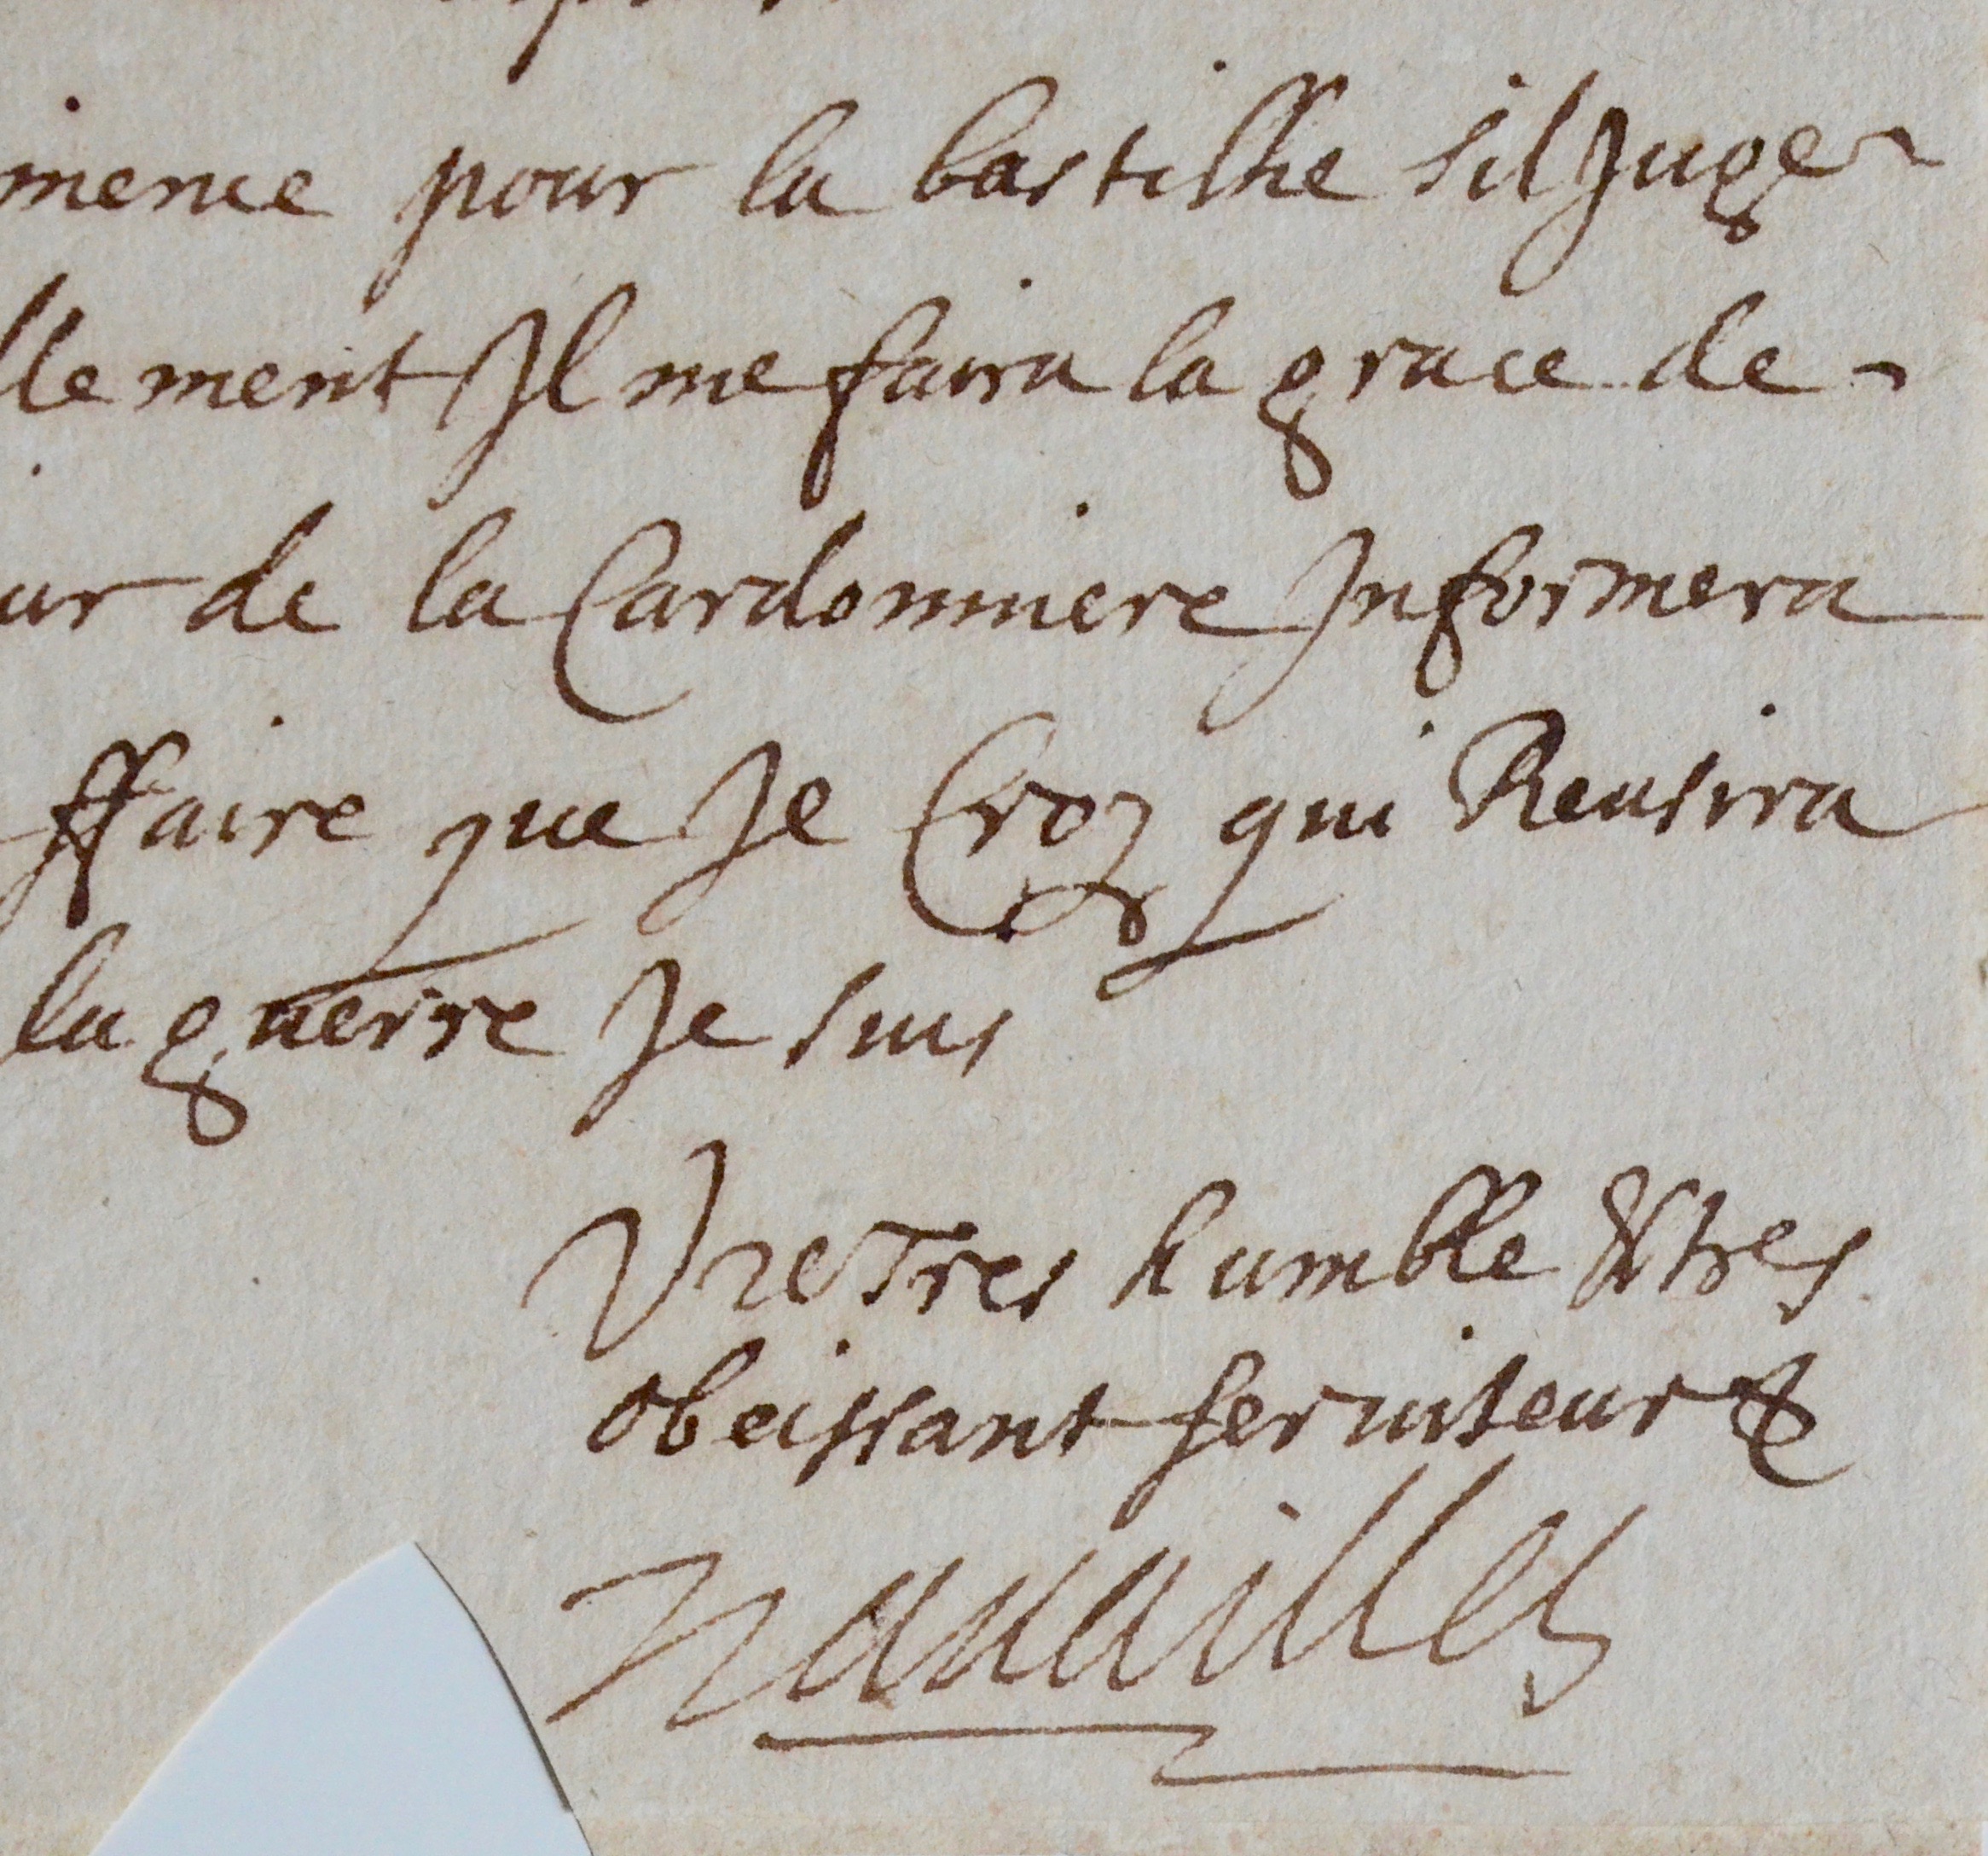 meme pour la bastille sil Juge
llement Il me faira la grace de
ur de la Cardonniere Informera
ffaire que Je Croy qui Reusira
la guerre Je suis
Vre Tres humble & tres
obeissant seruiteur &
Nauailles